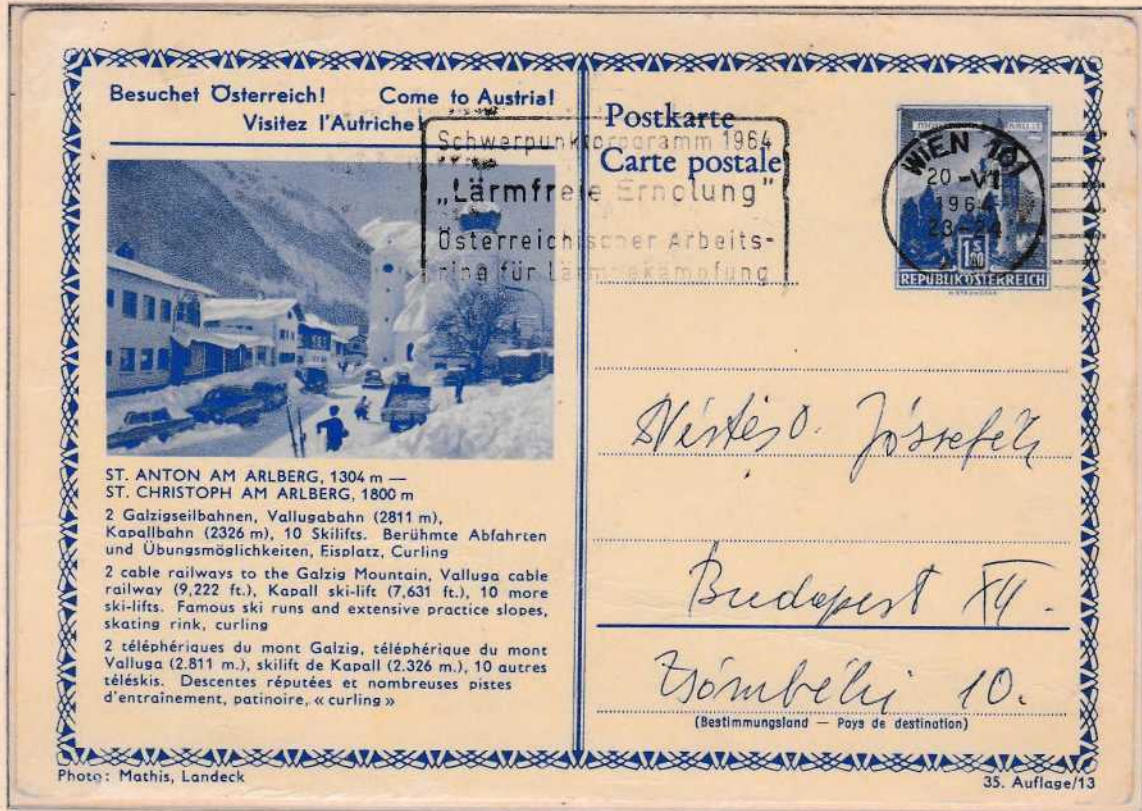 Besuchet Österreich! Come to Austria!
Visitez l'Autriche!
Postkarte
Carte postale
Schwerpunktprogramm 1964
„Lärmfreie Erholung"
Österreichischer Arbeits-
ring für Lärmbekämpfung
WIEN 101
20-VI
1964
23-24
1 S 80
REPUBLIK ÖSTERREICH
ST. ANTON AM ARLBERG, 1304 m —
ST. CHRISTOPH AM ARLBERG, 1800 m
2 Galzigseilbahnen, Vallugabahn (2811 m),
Kapallbahn (2326 m), 10 Skilifts. Berühmte Abfahrten
und Übungsmöglichkeiten, Eisplatz, Curling
2 cable railways to the Galzig Mountain, Valluga cable
railway (9,222 ft.), Kapall ski-lift (7,631 ft.), 10 more
ski-lifts. Famous ski runs and extensive practice slopes,
skating rink, curling
2 téléphériques du mont Galzig, téléphérique du mont
Valluga (2.811 m.), skilift de Kapall (2.326 m.), 10 autres
téléskis. Descentes réputées et nombreuses pistes
d'entraînement, patinoire, « curling »
Budapest
10.
(Bestimmungsland — Pays de destination)
Photo: Mathis, Landeck
35. Auflage/13